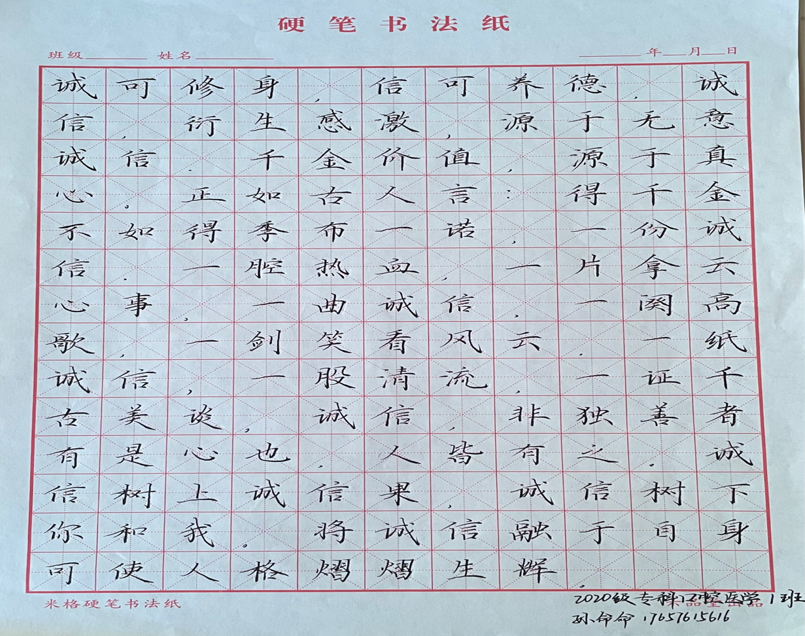 硬笔书法纸
班级 姓名 年 月 日
诚可修身，信可养德，诚
信，衍生感激，源于无意
诚信．千金价值，源于真
心。正如古人言：得千金
不如得季布一诺，一份诚
信．一腔热血，一片拿云
心事，一曲诚信．一阕高
歌，一剑笑看风云．一纸
诚信，一股清流，一证千
古美谈，诚信，非独善者
有是心也．人皆有之．诚
信树上诚信果，诚信树下
你和我。将诚信融于自身
可使人格熠熠生辉．
米格硬笔书法纸
2020级专科口腔医学1班
孙命命 17657615616